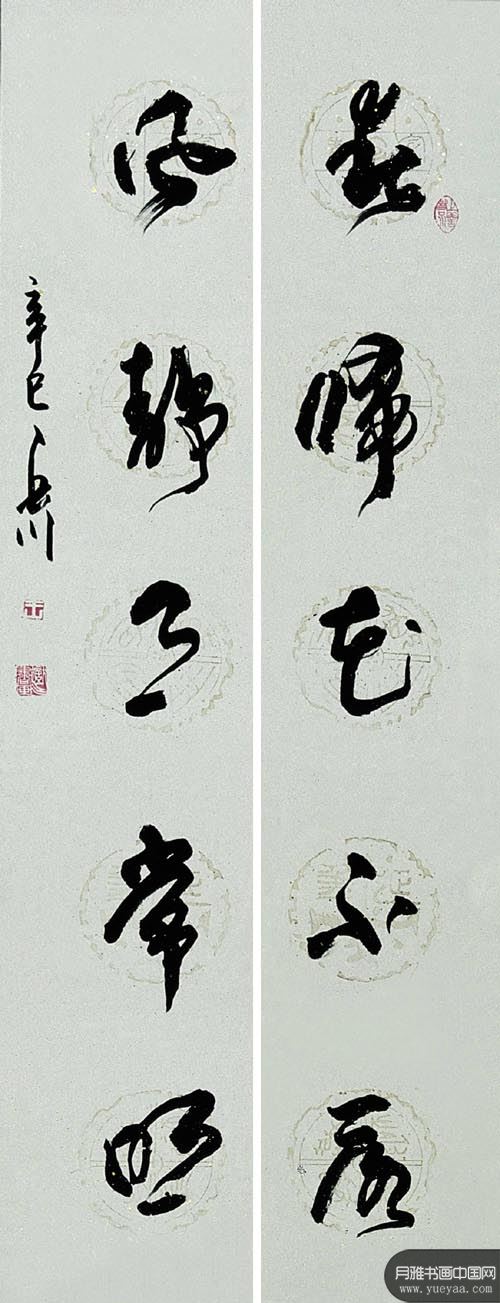 春歸花不落
風靜月常明
辛巳岳川
王
月雅书画中国网
www.yueyaa.com